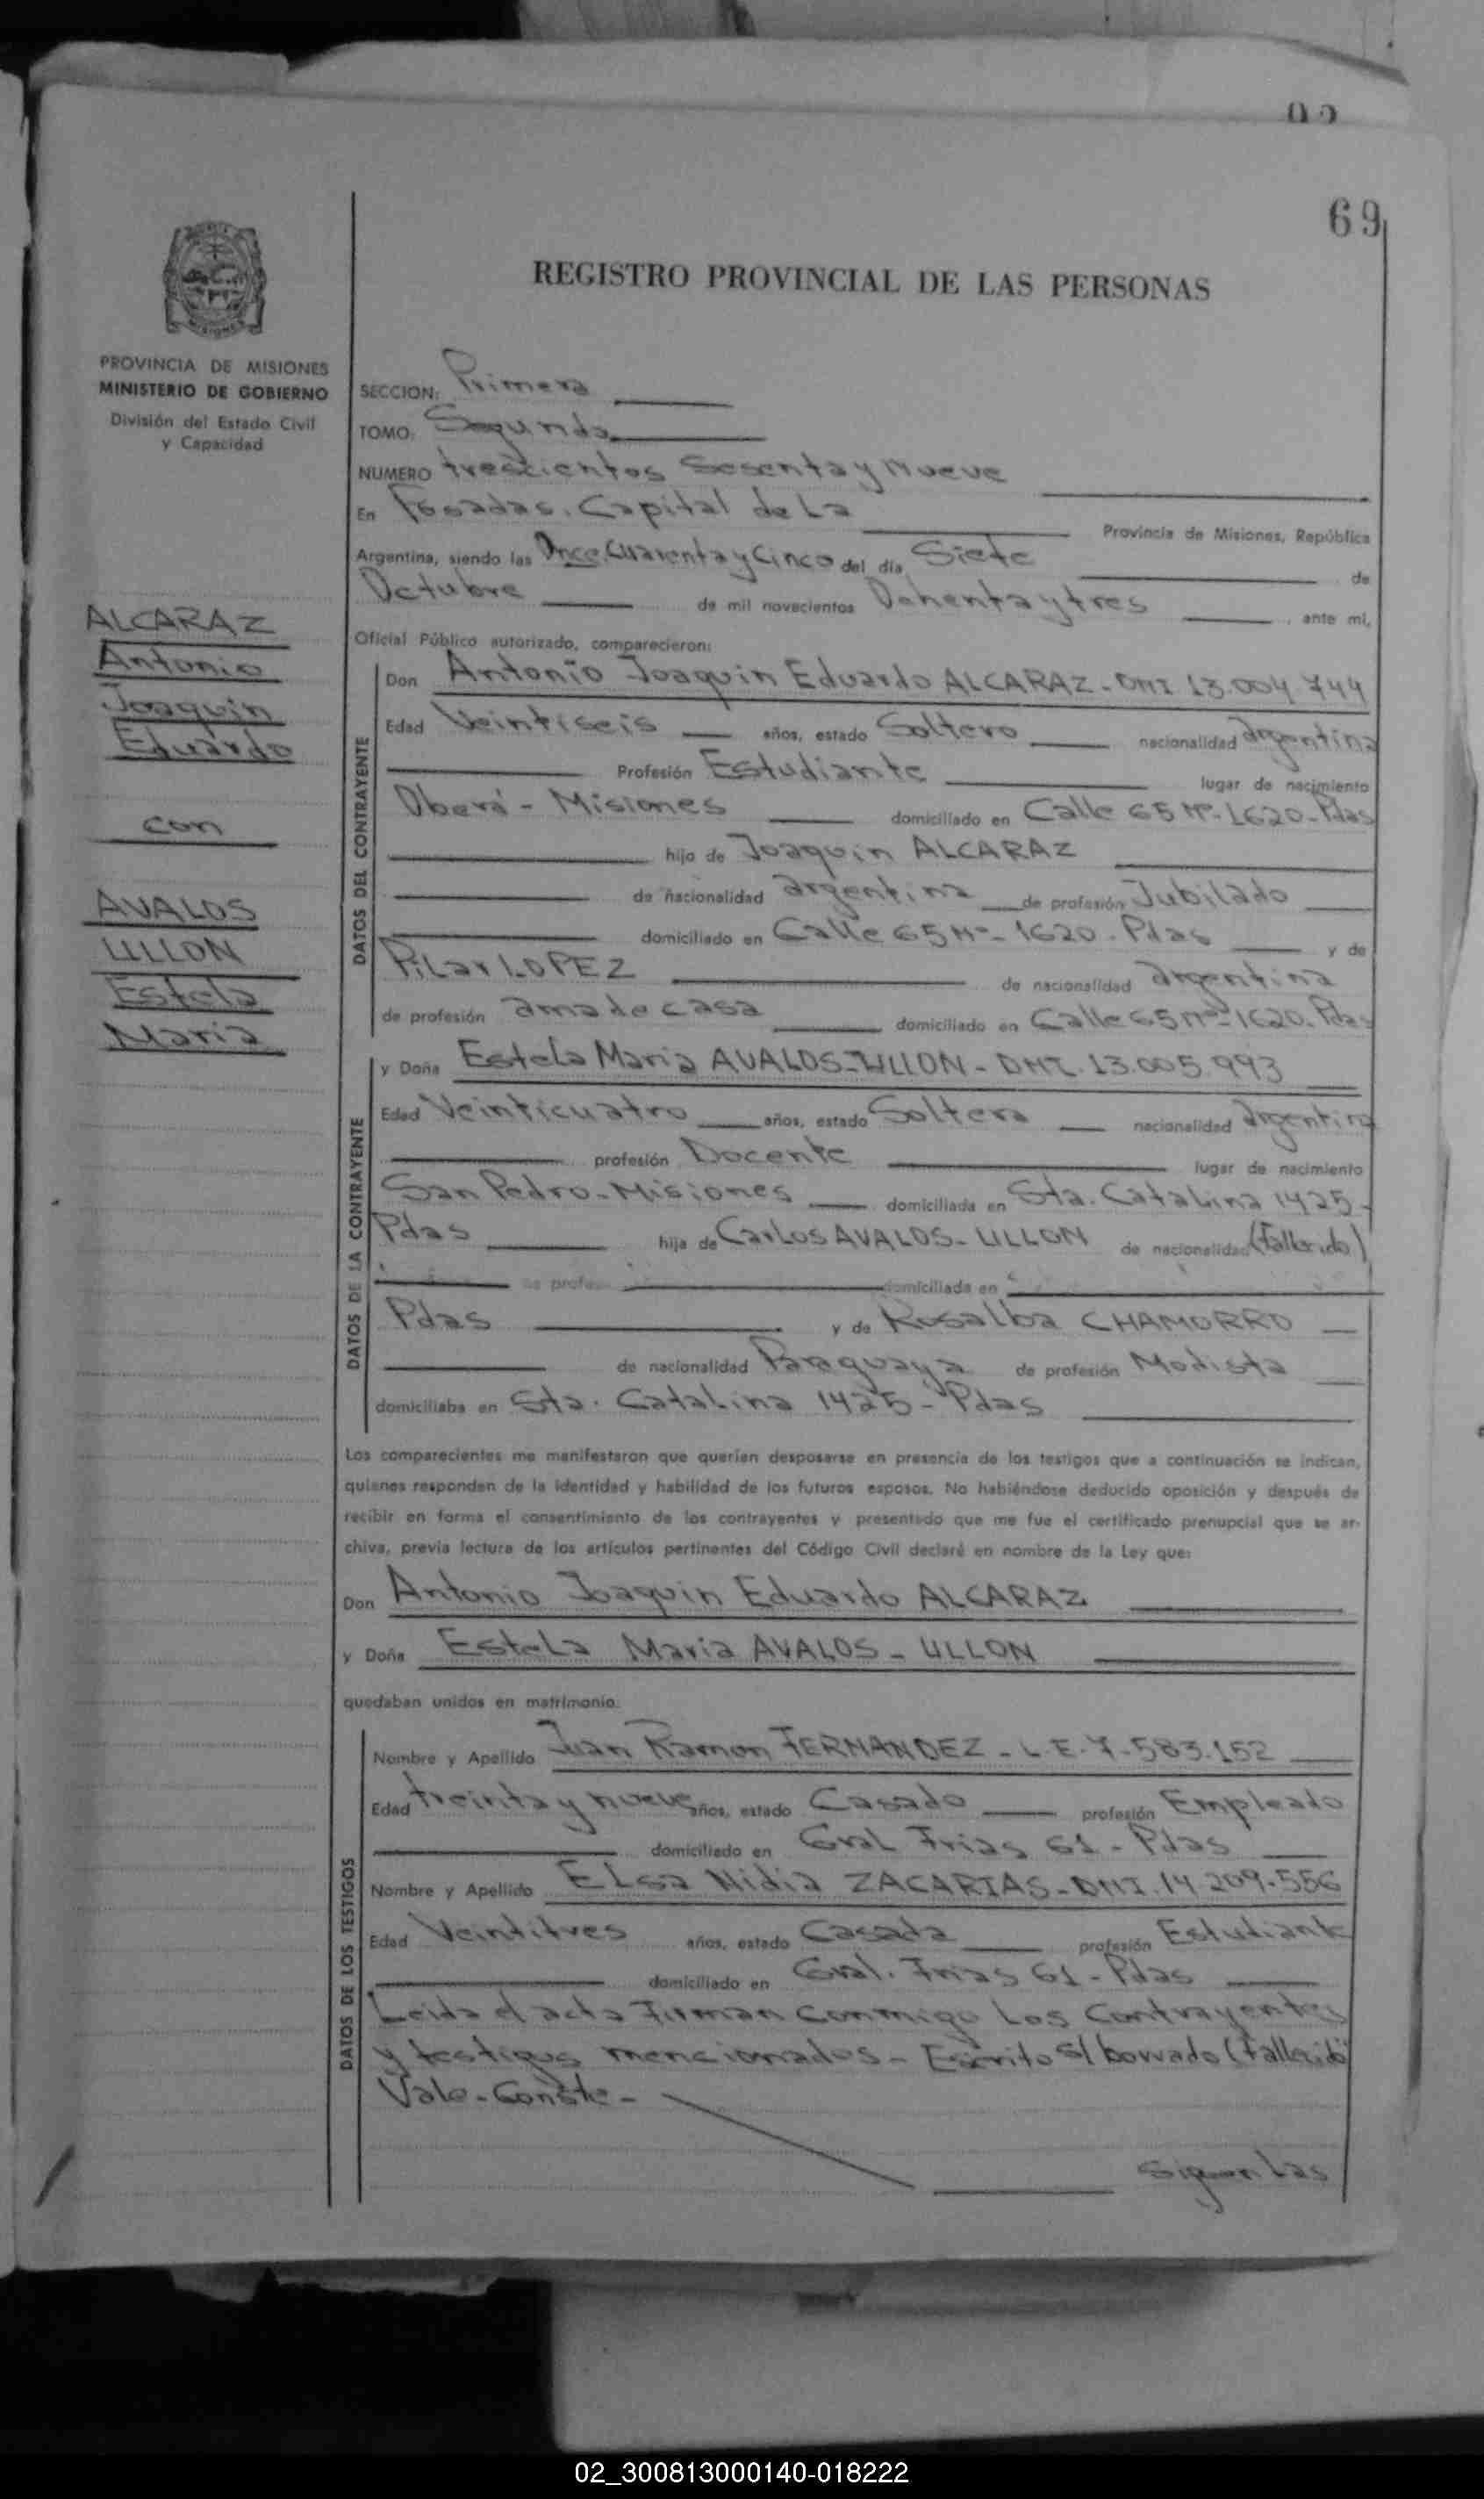 69
REGISTRO PROVINCIAL DE LAS PERSONAS
PROVINCIA DE MISIONES
MINISTERIO DE GOBIERNO
División del Estado Civil
y Capacidad
ALCARAZ
Antonio
Joaquin
Eduardo
con
AVALOS
ULLON
Estela
Maria
SECCION: Primera
TOMO: Segundo
NUMERO trescientos Sesenta y Nueve
En Posadas. Capital de La Provincia de Misiones, República
Argentina, siendo las Once. Cuarenta y Cinco del día Siete de
Octubre de mil novecientos Ochenta y tres ante mí,
Oficial Público autorizado, comparecieron:
DATOS DEL CONTRAYENTE
Don Antonio Joaquin Eduardo ALCARAZ - DNI 13.004 744
Edad Veintiseis años, estado Soltero nacionalidad argentina
Profesión Estudiante lugar de nacimiento
Oberá - Misiones domiciliado en Calle 65 Nº- 1620 - Pdas
hijo de Joaquin ALCARAZ
de nacionalidad argentina de profesión Jubilado
domiciliado en Calle 65 Nº- 1620 - Pdas y de
Pilar LOPEZ de nacionalidad argentina
de profesión ama de casa domiciliado en Calle 65 Nº- 1620. Pdas
DATOS DE LA CONTRAYENTE
y Doña Estela Maria AVALOS-ULLON - DNI. 13.005.993
Edad Veinticuatro años, estado Soltera nacionalidad argentina
profesión Docente lugar de nacimiento
San Pedro - Misiones domiciliada en Sta. Catalina 1425-
Pdas hija de Carlos AVALOS - ULLON de nacionalidad (Fallecido)
domiciliada en
Pdas y de Rosalba CHAMORRO
de nacionalidad Paraguaya de profesión Modista
domiciliaba en Sta. Catalina 1425 - Pdas
Los comparecientes me manifestaron que querían desposarse en presencia de los testigos que a continuación se indican,
quienes responden de la identidad y habilidad de los futuros esposos. No habiéndose deducido oposición y después de
recibir en forma el consentimiento de los contrayentes y presentado que me fue el certificado prenupcial que se ar-
chiva, previa lectura de los artículos pertinentes del Código Civil declaré en nombre de la Ley que:
Don Antonio Joaquin Eduardo ALCARAZ
y Doña Estela Maria AVALOS - ULLON
quedaban unidos en matrimonio.
DATOS DE LOS TESTIGOS
Nombre y Apellido Juan Ramon FERNANDEZ - L.E. 7.583.152
Edad treinta y nueve años, estado Casado profesión Empleado
domiciliado en Gral Frias 61 - Pdas
Nombre y Apellido Elsa Nidia ZACARIAS - DNI. 14 209.556
Edad Veintitres años, estado Casada profesión Estudiante
domiciliado en Gral. Frias 61 - Pdas
Leida el acta Firman conmigo Los Contrayentes
y testigos mencionados - Escrito s/ borrado (Fallecido)
Vale - Conste -
Siguen Las
02_300813000140-018222